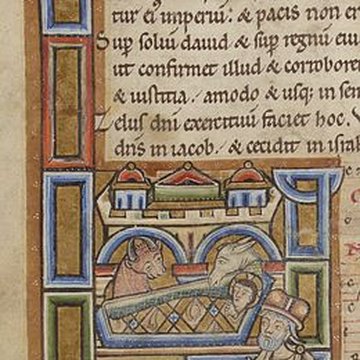 tur ei imperiu: & pacis non er
Sup soliu dauid & sup regnu eiu
ut confirmet illud & corrobore
& iustitia. amodo & usq; in sem
Zelus dni exercituu faciet hoc. V
dns in iacob. & cecidit in israh